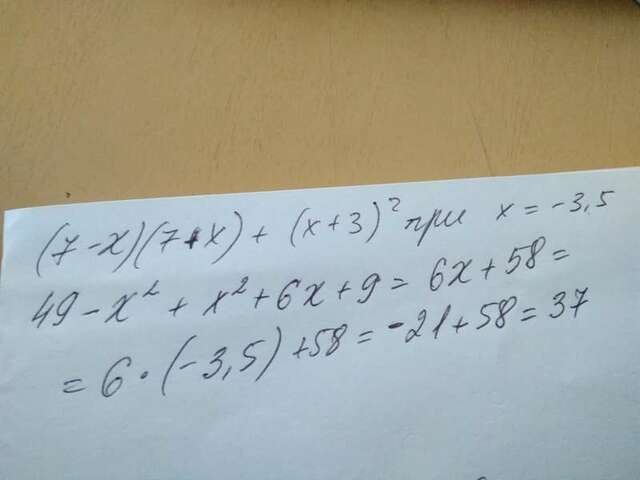 (7-x)(7+x) + (x+3)² при x = -3,5
49 - x² + x² + 6x + 9 = 6x + 58 =
= 6 · (-3,5) + 58 = -21 + 58 = 37